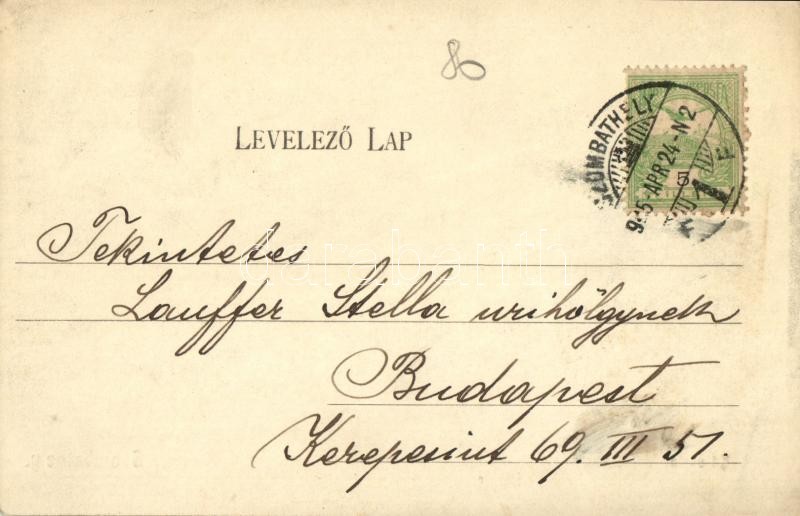 80
LEVELEZŐ LAP
SZOMBATHELY
905 APR 24 - N2
5
1 E
Tekintetes
Lauffer Stella urihölgynek
Budapest
Kerepesiut 69. III 51.
darabanth